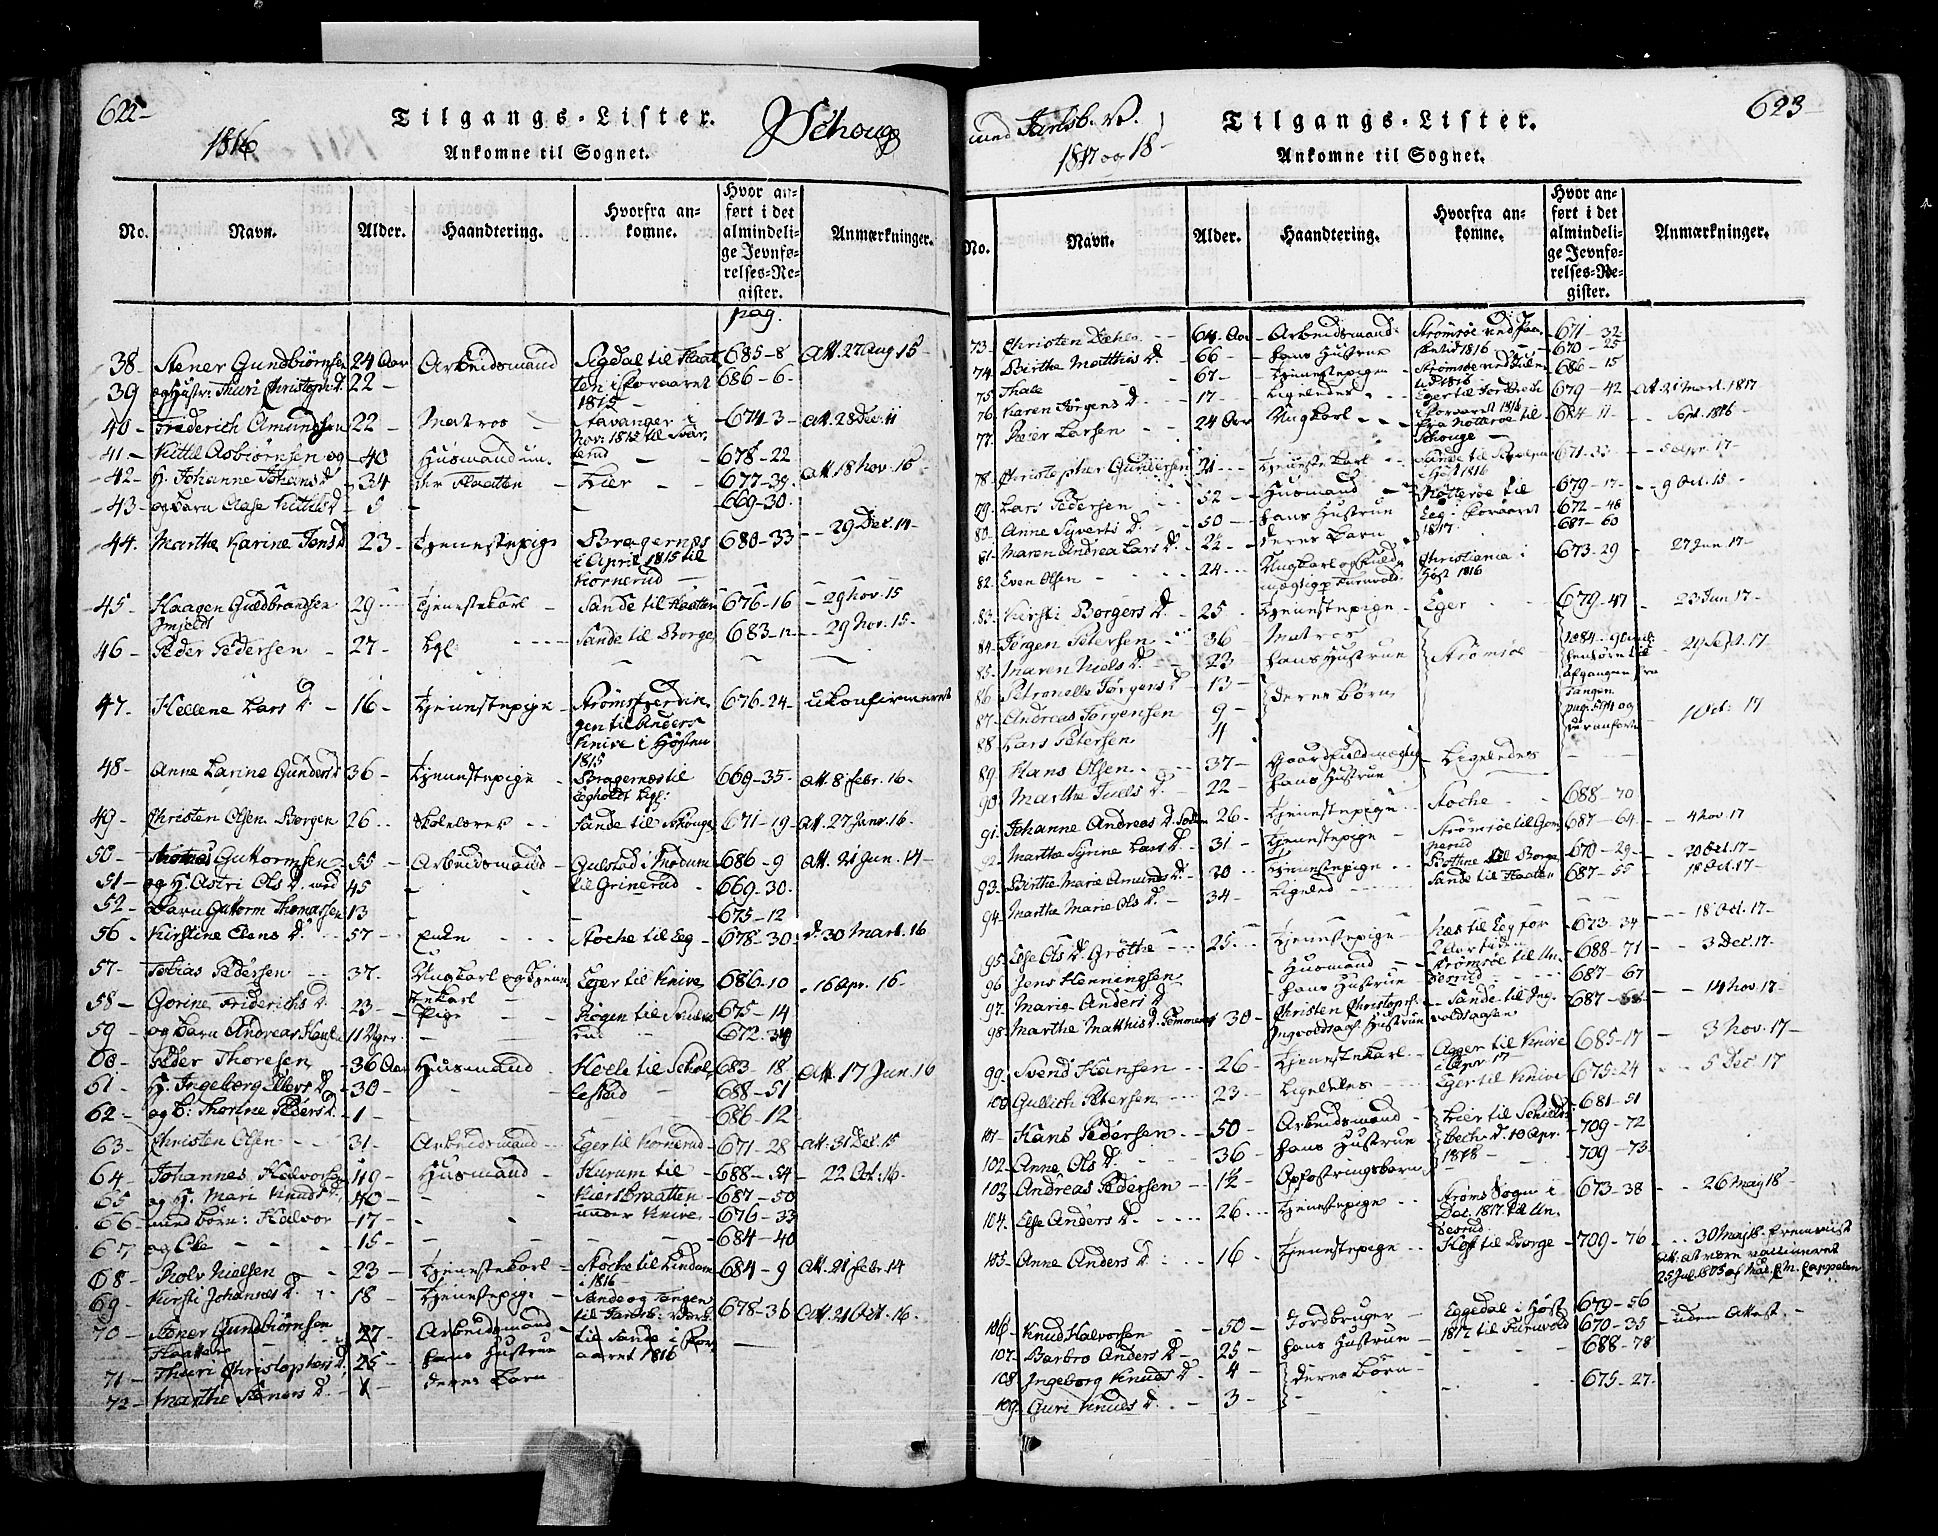 622
1816
Tilgangs-Lister.
Ankomne til Sognet.
Schoug
No.
Navn.
Alder.
Haandtering.
Hvorfra ankomne.
Hvor anført i det almindelige Jevnførelses-Register.
Anmærkninger.
pag.
38 Stener Gundbiørnsen 24 Aar Arbeidsmand Sigdal til Flaat 685-8 Att. 27 Aug 15
39 og Hustr: Thuri Christoph D. 22 ten i Foraaret 686-6
1815
40 Friderich Amundsen 22 Matros Stavanger i 674-3 Att. 28 Dec. 11
Nov: 1815 til
41 Kittil Asbiørnsen og 40 Husmand un- 678-22
42 H. Johanne Johans D. 34 der Flaatten Lier 677-39 Att 18 Nov. 16
43 og Barn Aase Kittils D. 5 669-30
44 Marthe Karine Jens D. 23 Tjenestepige Bragernes 680-33 29 Dec. 14
i April 1815 til
Kornerud
45 Haagen Guldbrandsen 29 Tjenestekarl Sande til Flaatten 676-16 29 Nov. 15
46 Peder Pedersen 27 Lgl: Sande til Borge 683-12 29 Nov. 15
47 Hellene Lars D. 16 Tjenestepige 676-24 Ukonfirmeret
gen til Anders
Knive i Høsten
1815
48 Anne Karine Gunders D. 36 Tjenestepige Bragernes til 669-35 Att 8 Febr. 16
Egholdt Lgl:
49 Christen Olsen Borgen 26 Skolelærer Sande til Schouge 671-19 Att. 27 Janv. 16
50 Thomas Guttormsen 55 Arbeidsmand Gulstad i Modum 686-9 Att. 21 Jun. 14
51 og H. Astri Ols D. med 45 til Grinerud 669-30
52 Barn Guttorm Thomassen 13 675-12
56 Kirstine Clens D. 57 Enke Stoche til Eeg 678-30 d. 30 Mart. 16
57 Tobias Pedersen 37 Ungkarl og Tjene Eger til Knive 686-10 16 Apr. 16
stekarl
58 Gorine Friderichs D. 23 Pige 675-14
59 og Barn Andreas 11 Uger 672-34
60 Peder Thoresen 36 Aar Husmand Hoele til Schol 683-18 Att. 17 Jun. 16
61 H. Ingeborg Peters D. 30 lestad 688-51
62 og B: Thorine Peders D. 1 686-12
63 Christen Olsen 31 Arbeidsmand Eger til Kornerud 671-28 Att. 31 Dec. 15
64 Johannes Halvorsen 49 Husmand Hurum til 688-54 22 Oct. 16
65 og H. Mari Knuds D. 40 Kiersbraatten 687-50
66 med børn: Halvor 17 under Knive 676-33
67 og Ole 15 684-40
68 Rolv Nielsen 23 Tjenestekarl Stoche til Lindum 684-9 Att. 21 Febr. 14
i 1816
69 Kirsti Johannes D. 18 Tjenestepige Sande og Tangen 678-36 Att. 21 Oct. 16
70 Stener Gundbiørnsen 27 Arbeidsmand til Jarlsb: Værk
Flaatten hans Hustrue til Sande i For
71 Thuri Christophers D. 25 deres Barn aaret 1816
72 Marthe Steners D.
623
med Jarlsb. V.
1817 og 18
Tilgangs-Lister.
Ankomne til Sognet.
No.
Navn.
Alder.
Haandtering.
Hvorfra ankomne.
Hvor anført i det almindelige Jevnførelses-Register.
Anmærkninger.
73 Christen Dæhlen 64 Aar Arbeidsmand Strømsøe ved Paa 671-32
74 Birthe Matthis D. 66 hans Hustrue sketid 1816 670-25
75 Thale 67 Tjenestepige Strømsøe 686-15
76 Karen Jørgens D. 17 Ligeledes Eger til 679-42 Att 21 Mart. 1817
i Foraaret 1816
77 Peter Larsen 24 Aar Ungkarl fra Nøtterøe til 684-11 Sept. 1816
Schouge
78 Christopher Gundersen 21 Tjenestekarl Sande til 671-33 5 Apr. 17
Høst 1816
79 Lars Pedersen 52 Husmand Nøtterøe til 679-17 9 Oct. 15
80 Anne Syverts D. 50 hans Hustrue Eeg i Foraaret 672-48
81 Maren Andrea Lars D. 22 deres Barn 1817 687-60
82 Even Olsen 24 Ungkarl og Fuld Christiania i 673-29 27 Jun. 17
mægtig p. Furuvold. Høst 1816
83 Kirsti Borgers D. 25 Tjenestepige Eger 679-47 23 Jun. 17
84 Jørgen Petersen 36 Matros Strømsøe 29 Sept. 17
85 Maren Niels D. 23 hans Hustrue
86 Petronelle Jørgens D. 13 deres Børn
87 Andreas Jørgensen 9
88 Lars Petersen 4
Afgangen fra
Tangen
pag. 574 og
1 Oct: 17
89 Hans Olsen 37 Gaardsfuldmægtig Ligeledes
90 Marthe Juels D. 22 hans Hustrue
91 Johanne Andreas D. 26 Tjenestepige Stoche 688-70
92 Marthe Syrine Lars D. 31 Tjenestepige Strømsøe til 687-64 4 Nov. 17
93 Birthe Marie Amunds D. 30 Tjenestepige Bothne til Borge 670-29 30 Oct. 17
94 Marthe Marie Ols D. 34 Ligeled Sande til Flaatten 687-55 18 Oct. 17
95 Else Ols D. Grøthe 25 Tjenestepige Næs til Eeg for 673-34 18 Oct. 17
2 Aar siden
96 Jens Henningsen Husmand Strømsøe til Un 688-71 3 Dec. 17
97 Marie Anders D. hans Hustrue desrud 687-67
98 Marthe Matthis D. 30 Christen Christophs. Sande til Ing 687-68 14 Nov. 17
Ingvoldsaas Hustrue voldsaasen
99 Svend Hansen 26 Tjenestekarl Agger til Knive 685-17 3 Nov. 17
i Apr 17
100 Gullich Petersen 23 Ligeledes Eger til Knive 675-24 5 Dec. 17
101 Hans Pedersen 50 Arbeidsmand Lier til 681-51
102 Anne Ols D. 36 hans Hustrue beche D. 10 Apr. 709-72
103 Andreas Pedersen 1½ Opfostringsbarn 1818 709-73
104 Else Anders D. 26 Tjenestepige Strøms Sogn i 673-38 26 May 18
Dec. 1817 til Un
desrud
105 Anne Anders D. 16 Tjenestepige Hof til Borge 709-76 30 May 18
Att. at være vaccineret
106 Knud Halvorsen 50 Jordbruger Eggedal i Høst 679-56 uden Attest
107 Barbro Anders D. 25 hans Hustrue 1817 til Furuvold 670-35
108 Ingeborg Knuds D. 4 deres Børn 688-78
109 Guri Knuds D. 3 675-27